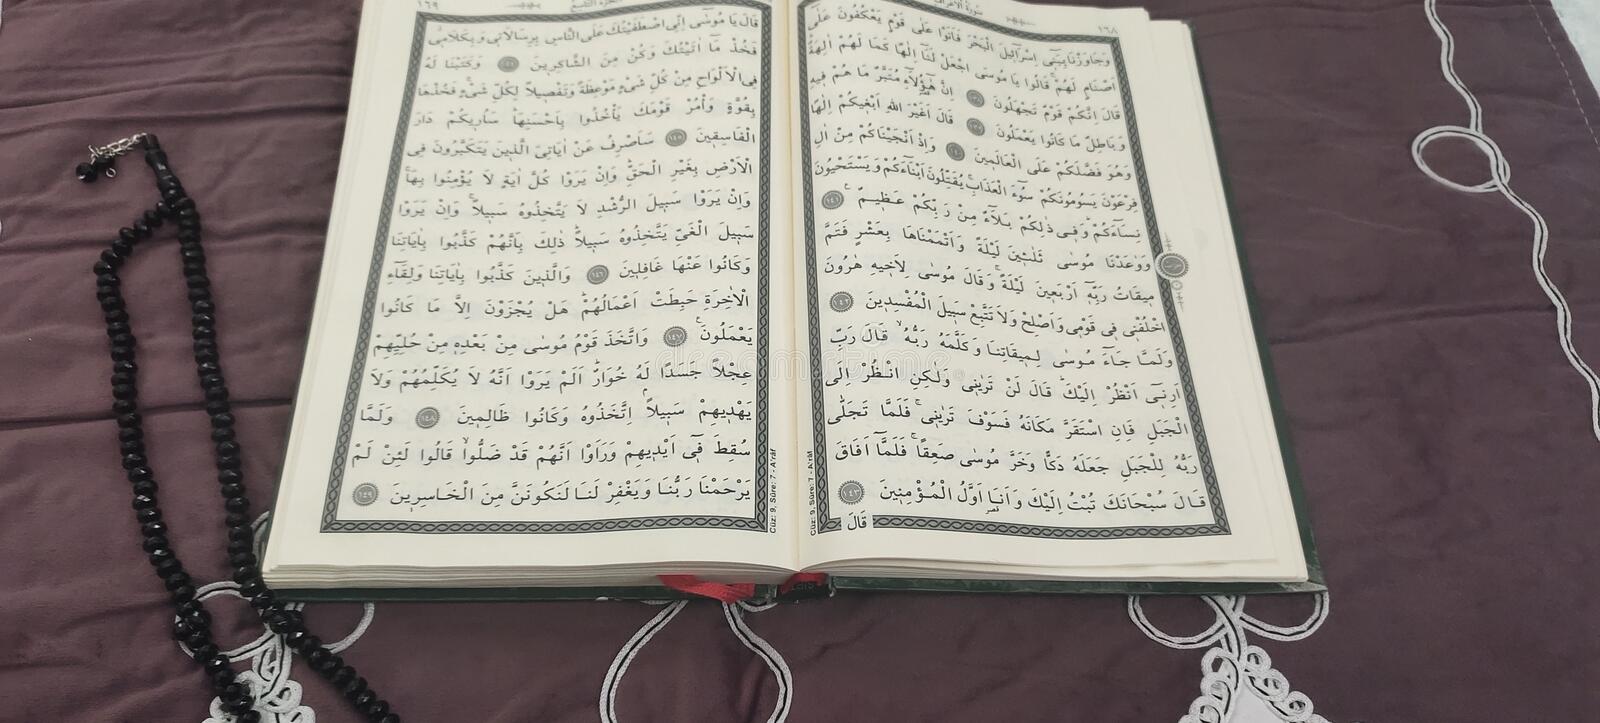 ١٦٨
سورة الاعراف
وَجَاوَزْنَا بِبَنٓى اِسْرَٓائٖلَ الْبَحْرَ فَاَتَوْا عَلٰى قَوْمٍ يَعْكُفُونَ عَلٰٓى
اَصْنَامٍ لَهُمْۚ قَالُوا يَا مُوسَى اجْعَلْ لَنَٓا اِلٰهًا كَمَا لَهُمْ اٰلِهَةٌۜ
قَالَ اِنَّكُمْ قَوْمٌ تَجْهَلُونَ ﴿١٣٨﴾ اِنَّ هٰٓؤُ۬لَٓاءِ مُتَبَّرٌ مَا هُمْ فٖيهِ
وَبَاطِلٌ مَا كَانُوا يَعْمَلُونَ ﴿١٣٩﴾ قَالَ اَغَيْرَ اللّٰهِ اَبْغٖيكُمْ اِلٰهًا
وَهُوَ فَضَّلَكُمْ عَلَى الْعَالَمٖينَ ﴿١٤٠﴾ وَاِذْ اَنْجَيْنَاكُمْ مِنْ اٰلِ
فِرْعَوْنَ يَسُومُونَكُمْ سُٓوءَ الْعَذَابِۚ يُقَتِّلُونَ اَبْنَٓاءَكُمْ وَيَسْتَحْيُونَ
نِسَٓاءَكُمْۜ وَفٖى ذٰلِكُمْ بَلَٓاءٌ مِنْ رَبِّكُمْ عَظٖيمٌ ﴿١٤١﴾
وَوٰعَدْنَا مُوسٰى ثَلٰثٖينَ لَيْلَةً وَاَتْمَمْنَاهَا بِعَشْرٍ فَتَمَّ
مٖيقَاتُ رَبِّهٖٓ اَرْبَعٖينَ لَيْلَةًۚ وَقَالَ مُوسٰى لِاَخٖيهِ هٰرُونَ
اخْلُفْنٖى فٖى قَوْمٖى وَاَصْلِحْ وَلَا تَتَّبِعْ سَبٖيلَ الْمُفْسِدٖينَ ﴿١٤٢﴾
وَلَمَّا جَٓاءَ مُوسٰى لِمٖيقَاتِنَا وَكَلَّمَهُ رَبُّهُۙ قَالَ رَبِّ
اَرِنٖٓى اَنْظُرْ اِلَيْكَۜ قَالَ لَنْ تَرٰينٖى وَلٰكِنِ انْظُرْ اِلَى
الْجَبَلِ فَاِنِ اسْتَقَرَّ مَكَانَهُ فَسَوْفَ تَرٰينٖىۚ فَلَمَّا تَجَلّٰى
رَبُّهُ لِلْجَبَلِ جَعَلَهُ دَكًّا وَخَرَّ مُوسٰى صَعِقًاۚ فَلَمَّٓا اَفَاقَ
قَالَ سُبْحَانَكَ تُبْتُ اِلَيْكَ وَاَنَا۬ اَوَّلُ الْمُؤْمِنٖينَ ﴿١٤٣﴾
قَالَ
Cüz: 9, Sûre: 7 - A'râf
١٦٩
الجزء التاسع
قَالَ يَا مُوسٰٓى اِنِّى اصْطَفَيْتُكَ عَلَى النَّاسِ بِرِسَالَاتٖى وَبِكَلَامٖى
فَخُذْ مَٓا اٰتَيْتُكَ وَكُنْ مِنَ الشَّاكِرٖينَ ﴿١٤٤﴾ وَكَتَبْنَا لَهُ
فِى الْاَلْوَاحِ مِنْ كُلِّ شَىْءٍ مَوْعِظَةً وَتَفْصٖيلًا لِكُلِّ شَىْءٍۚ فَخُذْهَا
بِقُوَّةٍ وَأْمُرْ قَوْمَكَ يَأْخُذُوا بِاَحْسَنِهَاۜ سَاُرٖيكُمْ دَارَ
الْفَاسِقٖينَ ﴿١٤٥﴾ سَاَصْرِفُ عَنْ اٰيَاتِىَ الَّذٖينَ يَتَكَبَّرُونَ فِى
الْاَرْضِ بِغَيْرِ الْحَقِّۜ وَاِنْ يَرَوْا كُلَّ اٰيَةٍ لَا يُؤْمِنُوا بِهَاۚ
وَاِنْ يَرَوْا سَبٖيلَ الرُّشْدِ لَا يَتَّخِذُوهُ سَبٖيلًاۚ وَاِنْ يَرَوْا
سَبٖيلَ الْغَىِّ يَتَّخِذُوهُ سَبٖيلًاۜ ذٰلِكَ بِاَنَّهُمْ كَذَّبُوا بِاٰيَاتِنَا
وَكَانُوا عَنْهَا غَافِلٖينَ ﴿١٤٦﴾ وَالَّذٖينَ كَذَّبُوا بِاٰيَاتِنَا وَلِقَٓاءِ
الْاٰخِرَةِ حَبِطَتْ اَعْمَالُهُمْۜ هَلْ يُجْزَوْنَ اِلَّا مَا كَانُوا
يَعْمَلُونَ۟ ﴿١٤٧﴾ وَاتَّخَذَ قَوْمُ مُوسٰى مِنْ بَعْدِهٖ مِنْ حُلِيِّهِمْ
عِجْلًا جَسَدًا لَهُ خُوَارٌۜ اَلَمْ يَرَوْا اَنَّهُ لَا يُكَلِّمُهُمْ وَلَا
يَهْدٖيهِمْ سَبٖيلًاۢ اِتَّخَذُوهُ وَكَانُوا ظَالِمٖينَ ﴿١٤٨﴾ وَلَمَّا
سُقِطَ فٖٓى اَيْدٖيهِمْ وَرَاَوْا اَنَّهُمْ قَدْ ضَلُّواۙ قَالُوا لَئِنْ لَمْ
يَرْحَمْنَا رَبُّنَا وَيَغْفِرْ لَنَا لَنَكُونَنَّ مِنَ الْخَاسِرٖينَ ﴿١٤٩﴾
Cüz: 9, Sûre: 7 - A'râf
dreamstime